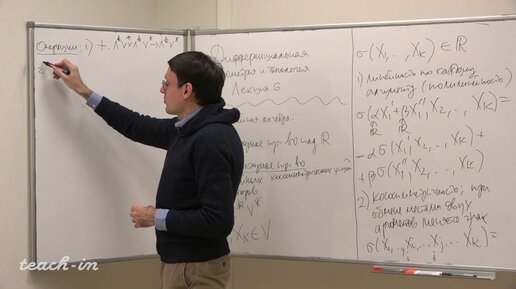 Операции: 1) +: ΛᵏV* × ΛᵏV* → ΛᵏV*
2
Дифференциальная
геометрия и топология
Лекция 6
алгебра:
пр-во над ℝ
пр-во
кососимметрических
V*
X_k ∈ V
σ(X₁, .., X_k) ∈ ℝ
1) линейность по каждому
аргументу (полилинейность)
σ(αX₁' + βX₁'', X₂, .., X_k) =
ℝ ℝ
= ασ(X₁', X₂, .., X_k) +
+ βσ(X₁'', X₂, .., X_k)
2) кососимметричность: при
обмене местами двух
аргументов меняет знак
σ(X₁, .., X_i, .., X_j, .., X_k) =
teach-in